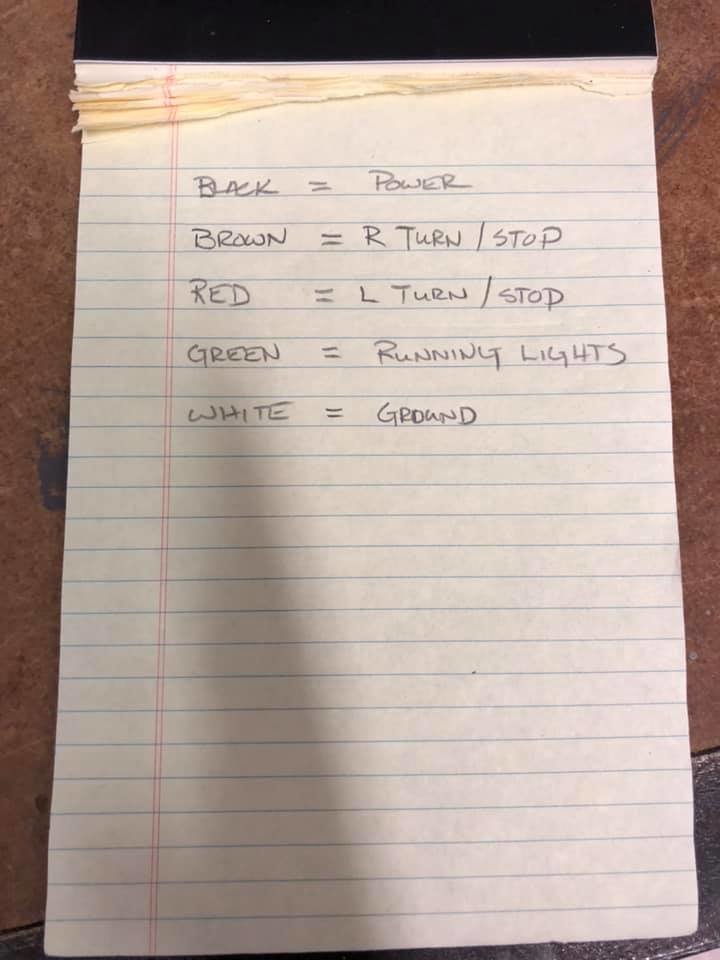 BLACK = POWER
BROWN = R TURN / STOP
RED = L TURN / STOP
GREEN = RUNNING LIGHTS
WHITE = GROUND